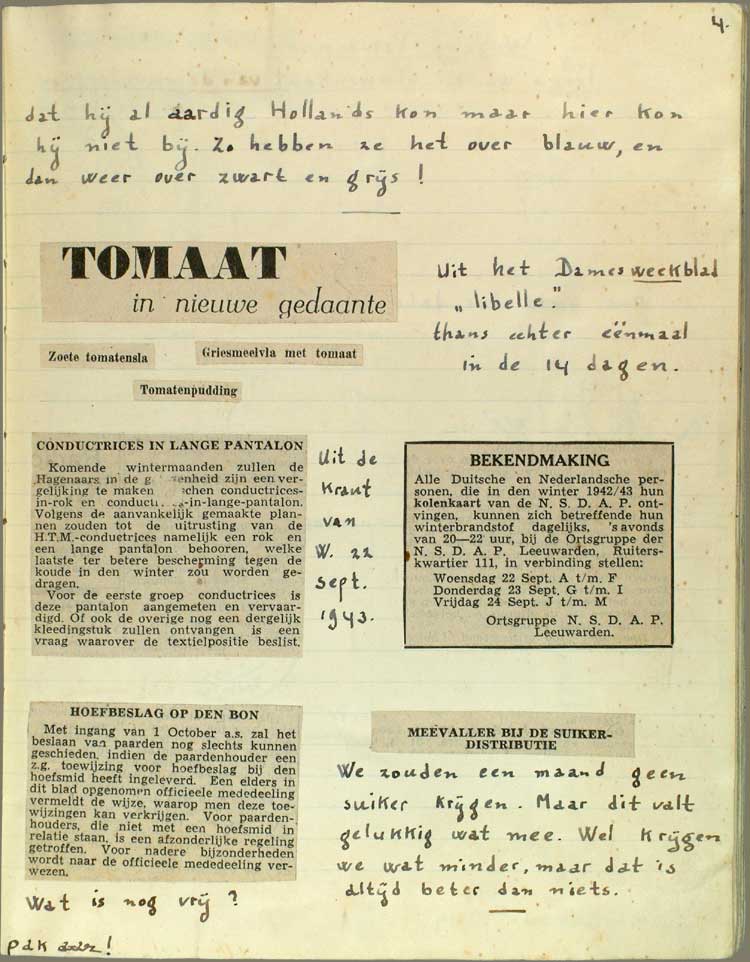 4.
dat hij al aardig Hollands kon maar hier kon
hij niet bij. Zo hebben ze het over blauw, en
dan weer over zwart en grijs!
TOMAAT
in nieuwe gedaante
Zoete tomatensla
Griesmeelvla met tomaat
Tomatenpudding
Uit het Damesweekblad
„libelle."
thans echter éénmaal
in de 14 dagen.
CONDUCTRICES IN LANGE PANTALON
Komende wintermaanden zullen de
Hagenaars in de g enheid zijn een ver-
gelijking te maken schen conductrices-
in-rok en conduct s-in-lange-pantalon.
Volgens de aanvankelijk gemaakte plan-
nen zouden tot de uitrusting van de
H.T.M.-conductrices namelijk een rok en
een lange pantalon behooren, welke
laatste ter betere bescherming tegen de
koude in den winter zou worden ge-
dragen.
Voor de eerste groep conductrices is
deze pantalon aangemeten en vervaar-
digd. Of ook de overige nog een dergelijk
kleedingstuk zullen ontvangen is een
vraag waarover de textielpositie beslist.
Uit de
Krant
van
W. 22
Sept.
1943.
BEKENDMAKING
Alle Duitsche en Nederlandsche per-
sonen, die in den winter 1942/43 hun
kolenkaart van de N. S. D. A. P. ont-
vingen, kunnen zich betreffende hun
winterbrandstof dagelijks, 's avonds
van 20—22 uur, bij de Ortsgruppe der
N. S. D. A. P. Leeuwarden, Ruiters-
kwartier 111, in verbinding stellen:
Woensdag 22 Sept. A t/m. F
Donderdag 23 Sept. G t/m. I
Vrijdag 24 Sept. J t/m. M
Ortsgruppe N. S. D. A. P.
Leeuwarden.
HOEFBESLAG OP DEN BON
Met ingang van 1 October a.s. zal het
beslaan van paarden nog slechts kunnen
geschieden, indien de paardenhouder een
z.g. toewijzing voor hoefbeslag bij den
hoefsmid heeft ingeleverd. Een elders in
dit blad opgenomen officieele mededeeling
vermeldt de wijze, waarop men deze toe-
wijzingen kan verkrijgen. Voor paarden-
houders, die niet met een hoefsmid in
relatie staan, is een afzonderlijke regeling
getroffen. Voor nadere bijzonderheden
wordt naar de officieele mededeeling ver-
wezen.
Wat is nog vrij?
MEEVALLER BIJ DE SUIKER-
DISTRIBUTIE
We zouden een maand geen
suiker krijgen. Maar dit valt
gelukkig wat mee. Wel krijgen
we wat minder, maar dat is
altijd beter dan niets.